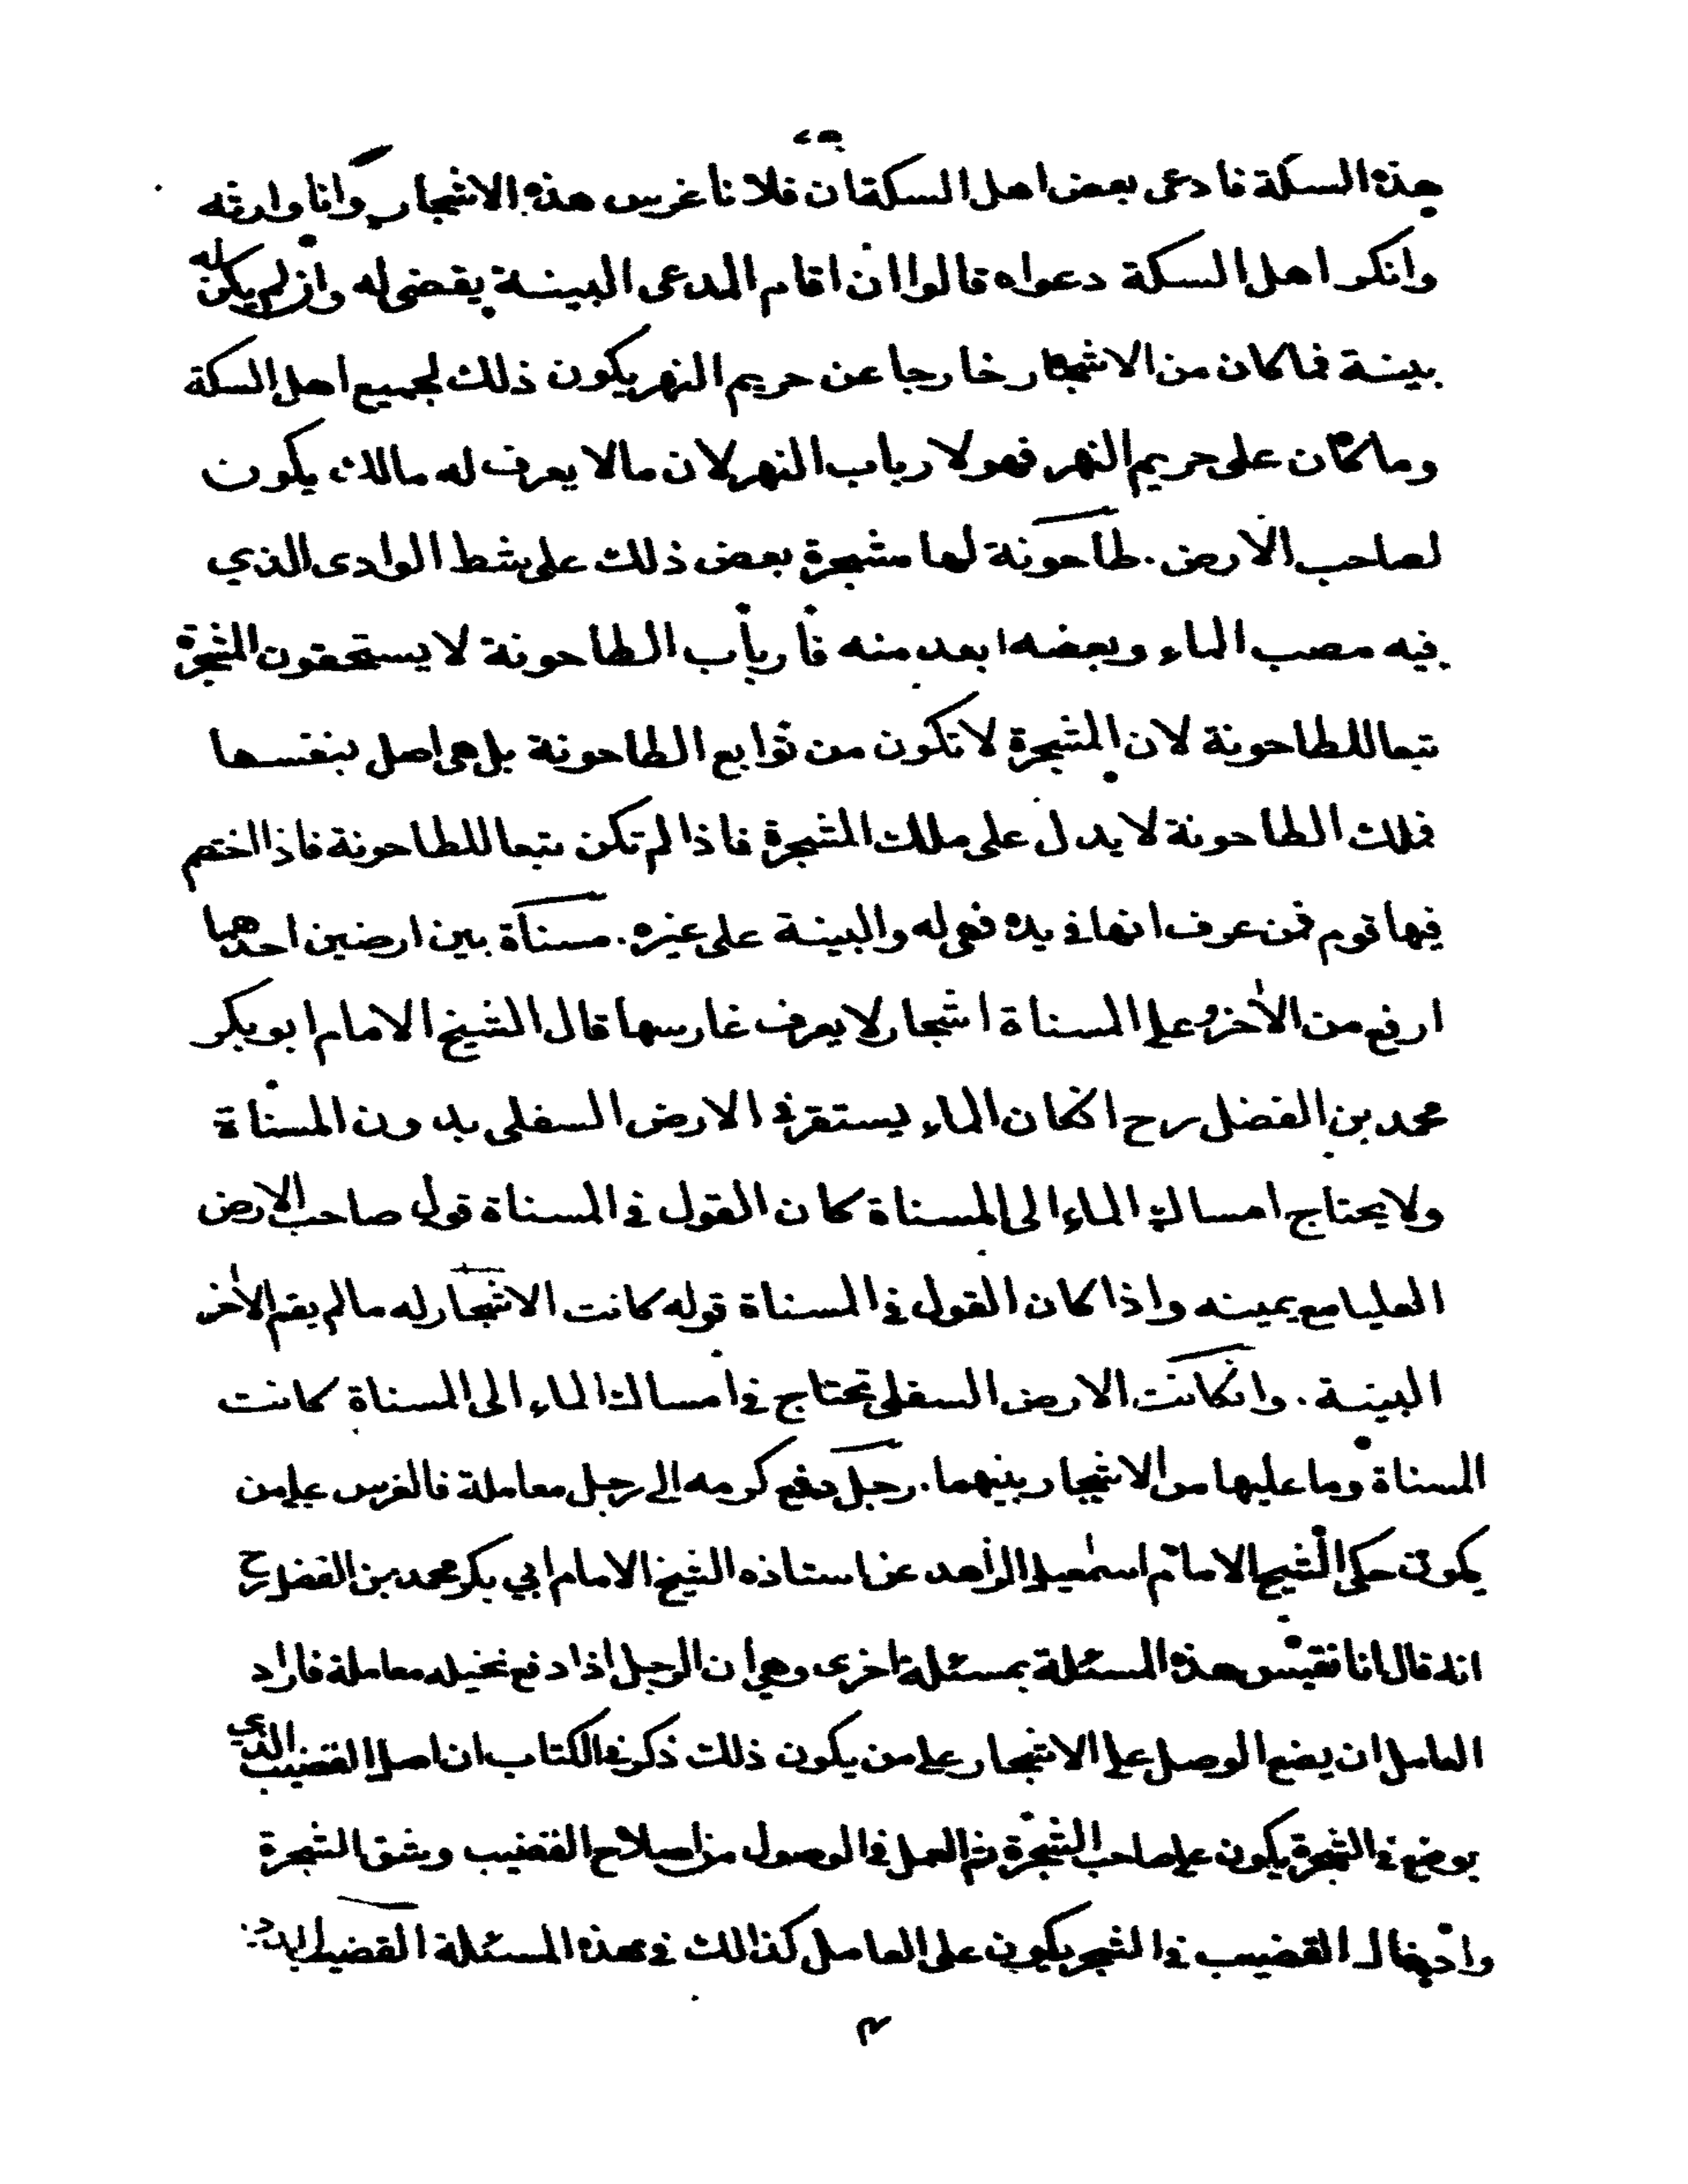 هذه السكة فادعى بعض اهل السكة ان فلانا غرس هذه الاشجار وانا وارثه
وانكر اهل السكة دعواه قالوا ان اقام المدعى البينة يقضى له وان لم يكن له
بينة فما كان من الاشجار خارجا عن حريم النهر يكون ذلك لجميع اهل السكة
وما كان على حريم النهر فهو لارباب النهر لان مالا يعرف له مالك يكون
لصاحب الارض . طاحونة لها مشجرة بعض ذلك على شط الوادى الذي
فيه مصب الماء وبعضه ابعد منه فأرباب الطاحونة لا يستحقون المشجرة
تبعا للطاحونة لان المشجرة لا تكون من توابع الطاحونة بل هى اصل بنفسها
فملك الطاحونة لا يدل على ملك المشجرة فاذا لم تكن تبعا للطاحونة فاذا اختصم
فيها قوم فمن عرف انها فى يده فهى له والبينة على غيره . مسناة بين ارضين احدهما
ارفع من الاخر وعلى المسناة اشجار لا يعرف غارسها قال الشيخ الامام ابو بكر
محمد بن الفضل رح انكان الماء يستقر فى الارض السفلى بدون المسناة
ولا يحتاج امساك الماء الى المسناة كان القول فى المسناة قول صاحب الارض
العليا مع يمينه واذا كان القول فى المسناة قوله كانت الاشجار له مالم يقم الاخر
البينة . وانكانت الارض السفلى تحتاج فى امساك الماء الى المسناة كانت
المسناة وما عليها من الاشجار بينهما . رجل دفع كرمه الى رجل معاملة فالغرس على من
يكون حكى الشيخ الامام اسمعيل الزاهد عن استاذه الشيخ الامام ابي بكر محمد بن الفضل رح
انه قال انا نقيس هذه المسئلة بمسئلة اخرى وهي ان الرجل اذا دفع نخيله معاملة فاراد
العامل ان يضع الوصل على الاشجار على من يكون ذلك ذكر فى الكتاب ان اصل القضيب الذي
يوضع فى الشجرة يكون على صاحب الشجرة ثم العمل فى الوصول من اصلاح القضيب وشق الشجرة
وادخال القضيب فى الشجر يكون على العامل كذالك فى هذه المسئلة القضيب